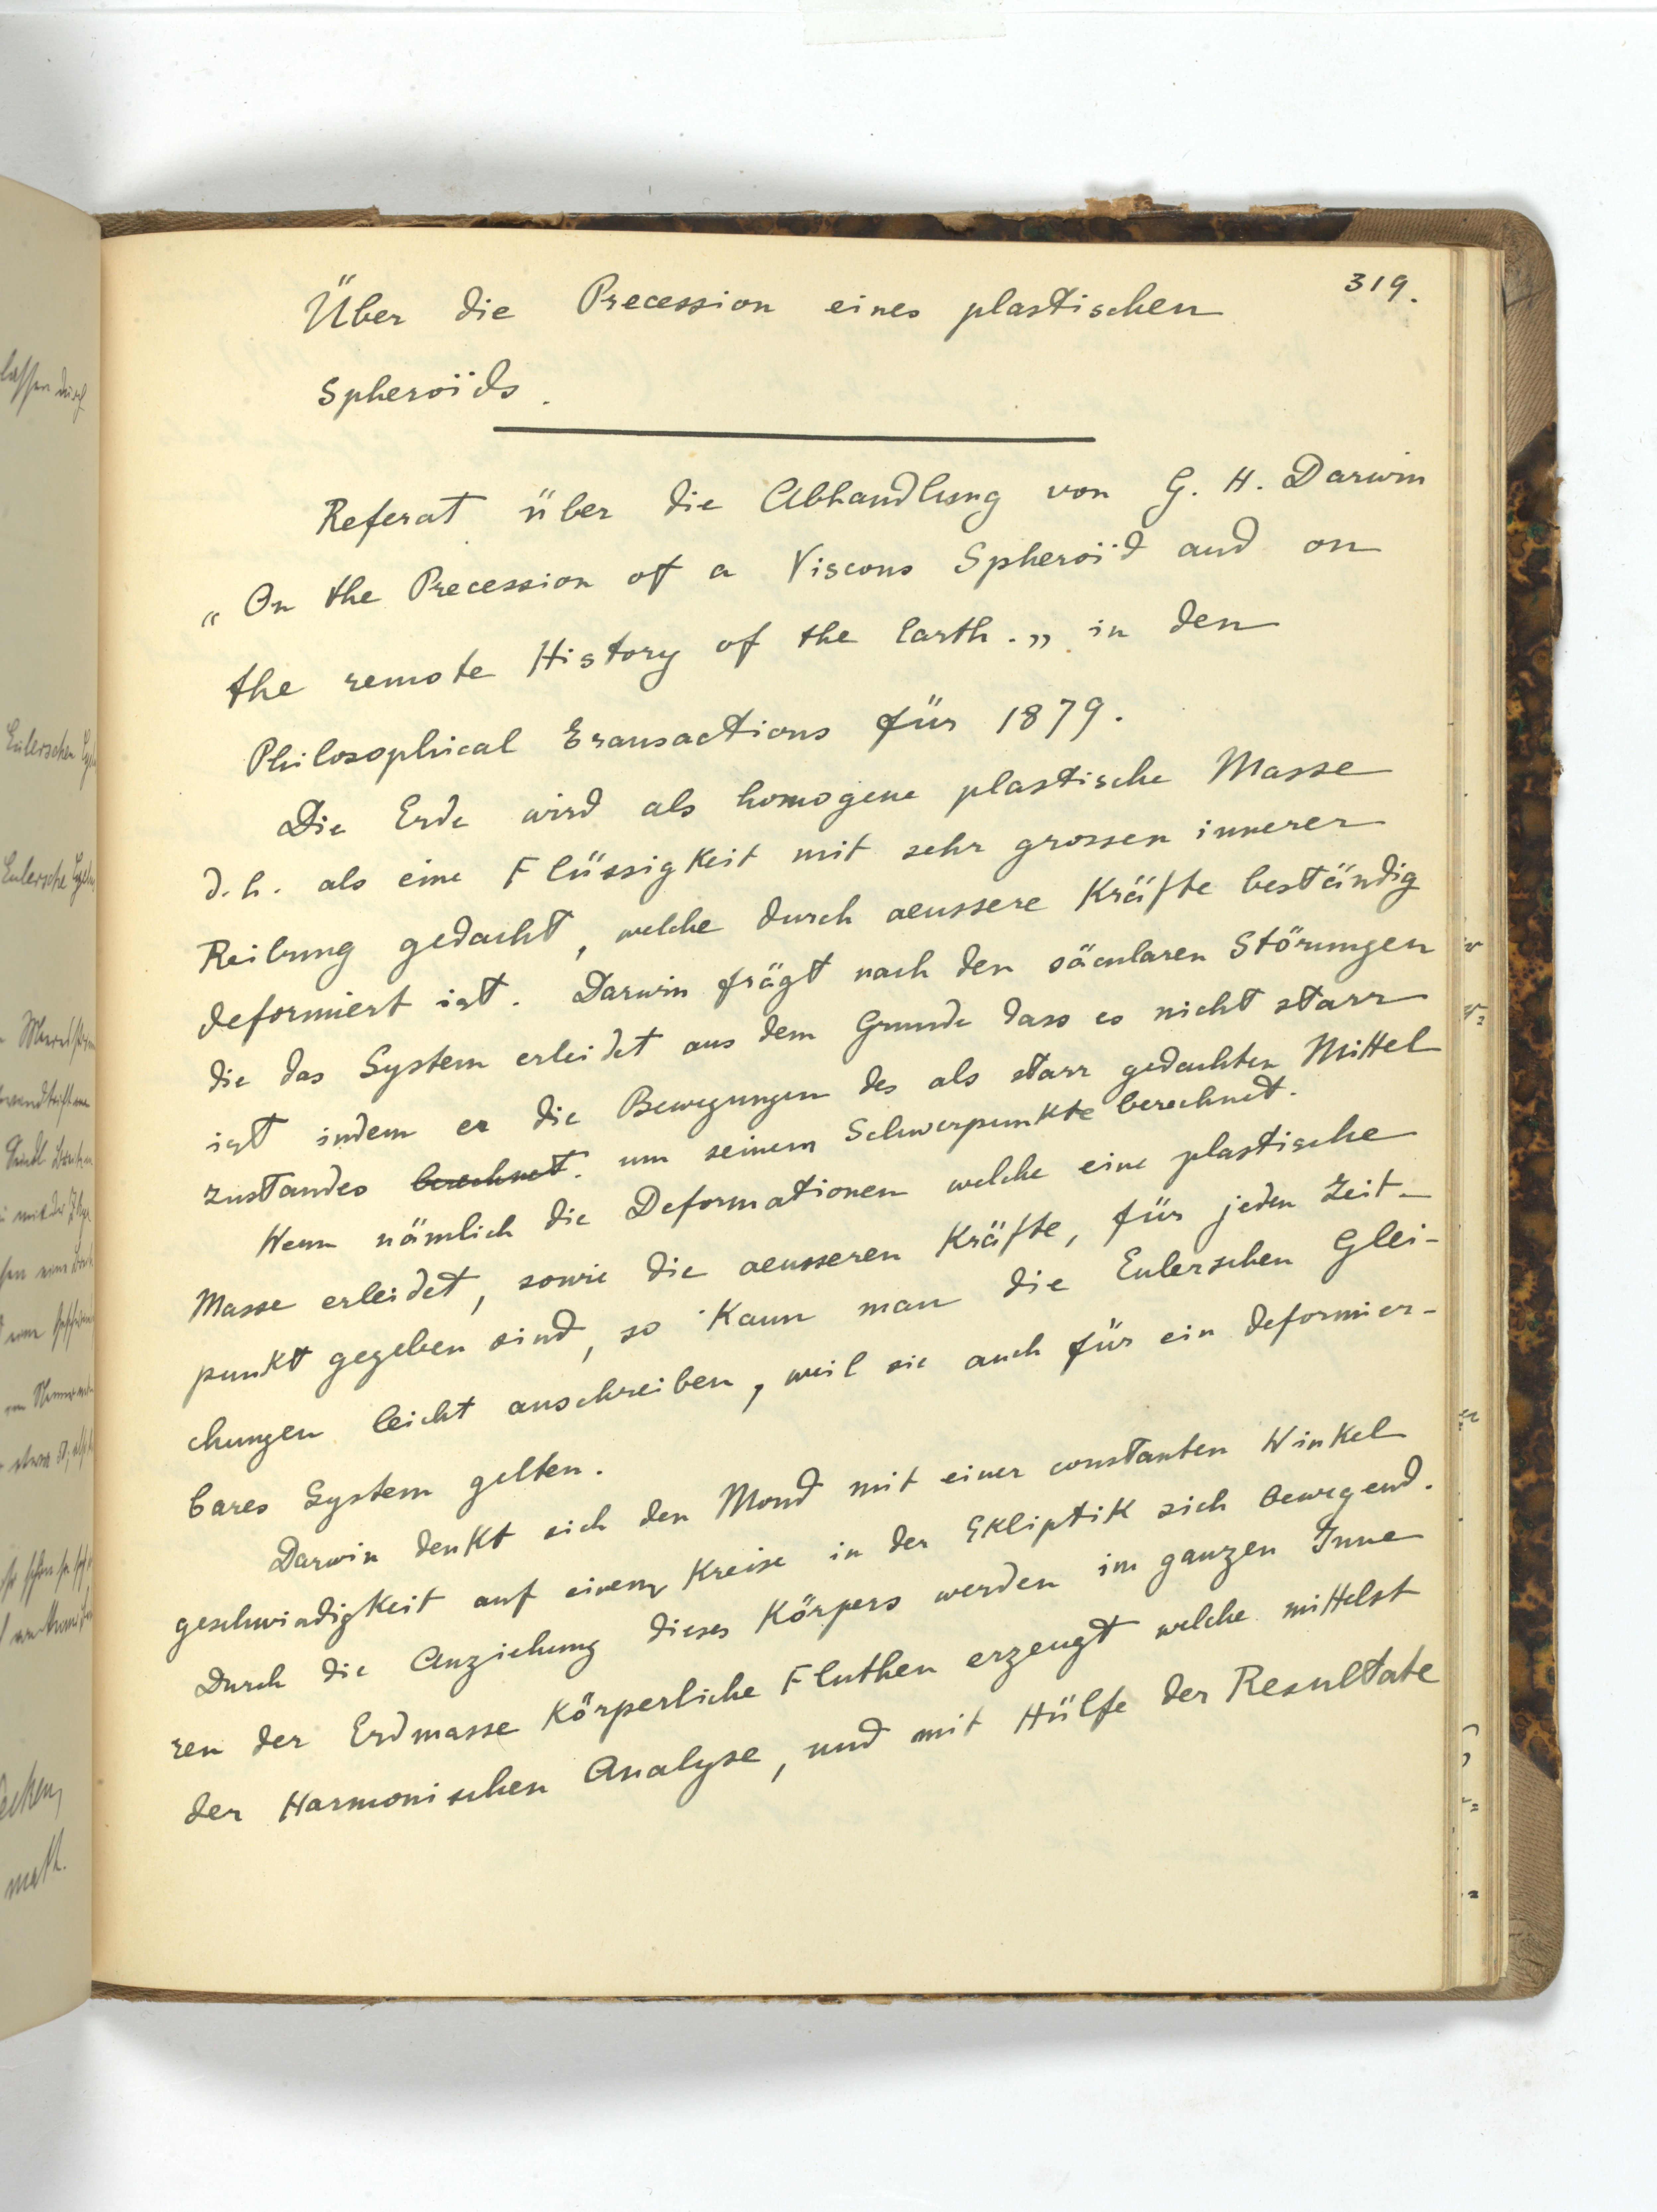 319.
Über die Precession eines plastischen
Spheroïds.
Referat über die Abhandlung von G. H. Darwin
„On the Precession of a Viscous Spheroïd and on
the remote History of the Earth.„ in den
Philosophical Transactions für 1879.
Die Erde wird als homogene plastische Masse
d.h. als eine Flüssigkeit mit sehr grossen innerer
Reibung gedacht, welche durch aeussere Kräfte beständig
deformiert ist. Darwin frägt nach den säcularen Störungen
die das System erleidet aus dem Grunde dass es nicht starr
ist indem er die Bewegungen des als starr gedachten Mittel
zustandes berechnet. um seinem Schwerpunkte berechnet.
Wenn nämlich die Deformationen welche eine plastische
Masse erleidet, sowie die aeusseren Kräfte, für jeden Zeit-
punkt gegeben sind, so kann man die Eulerschen Glei-
chungen leicht anschreiben, weil sie auch für ein deformier-
bares System gelten.
Darwin denkt sich den Mond mit einer constanten Winkel
geschwindigkeit auf einem Kreise in der Ekliptik sich bewegend.
Durch die Anziehung dieses Körpers werden im ganzen Inne
ren der Erdmasse Körperliche Fluthen erzeugt welche mittelst
der Harmonischen Analyse, und mit Hülfe der Resultate
Eulerschen
Eulersche
math.